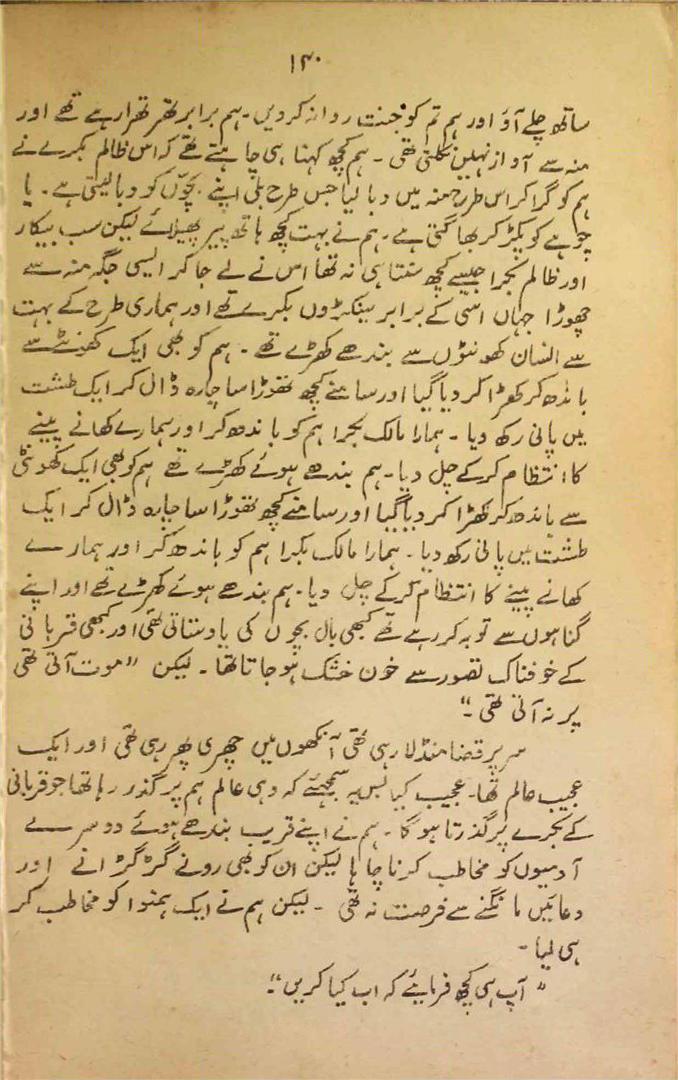 ۱۳۰
ساتھ چلے آؤ اور ہم تم کو جنت روانہ کردیں۔ ہم برابر تھر تھرا رہے تھے اور
منہ سے آواز نہیں نکلتی تھی ۔ ہم کچھ کہنا ہی چاہتے تھے کہ اس ظالم بکرے نے
ہم کو گرا کر اس طرح منہ میں دبا لیا جس طرح بلی اپنے بچوں کو دبا لیتی ہے ۔ یا
چوہے کو پکڑ کر بھاگتی ہے۔ ہم نے بہت کچھ ہاتھ پیر پھیلائے لیکن سب بیکار
اور ظالم بکرا جیسے کچھ سنتا ہی نہ تھا اس نے لے جا کر ایسی جگہ منہ سے
چھوڑا جہاں اسی کے برابر سینکڑوں بکرے تھے اور ہماری طرح کے بہت
سے انسان کھونٹوں سے بندھے کھڑے تھے ۔ ہم کو بھی ایک کھونٹے سے
باندھ کر کھڑا کر دیا گیا اور سامنے کچھ تھوڑا سا چارہ ڈال کر ایک طشت
میں پانی رکھ دیا ۔ ہمارا مالک بکرا ہم کو باندھ کر اور ہمارے کھانے پینے
کا انتظام کرکے چل دیا۔ ہم بندھے ہوئے کھڑے تھے ہم کو بھی ایک کھونٹی
سے باندھ کر کھڑا کر دیا گیا اور سامنے کچھ تھوڑا سا چارہ ڈال کر ایک
طشت میں پانی رکھ دیا ۔ ہمارا مالک بکرا ہم کو باندھ کر اور ہمارے
کھانے پینے کا انتظام کرکے چل دیا۔ ہم بندھے ہوئے کھڑے تھے اور اپنے
گناہوں سے توبہ کر رہے تھے کبھی بال بچوں کی یاد ستاتی تھی اور کبھی قربانی
کے خوفناک تصور سے خون خشک ہو جاتا تھا ۔ لیکن "موت آتی تھی
پر نہ آتی تھی ۔"
سر پر قضا منڈلا رہی تھی آنکھوں میں چھری پھر رہی تھی اور ایک
عجیب عالم تھا۔ عجیب کیا بس یہ سمجھئے کہ وہی عالم ہم پر گذر رہا تھا جو قربانی
کے بکرے پر گذرتا ہو گا ۔ ہم نے اپنے قریب بندھے ہوئے دوسرے
آدمیوں کو مخاطب کرنا چاہا لیکن ان کو بھی رونے گڑگڑانے اور
دعائیں مانگنے سے فرصت نہ تھی ۔ لیکن ہم نے ایک ہمنوا کو مخاطب کر
ہی لیا ۔
"آپ ہی کچھ فرمایئے کہ اب کیا کریں "۔